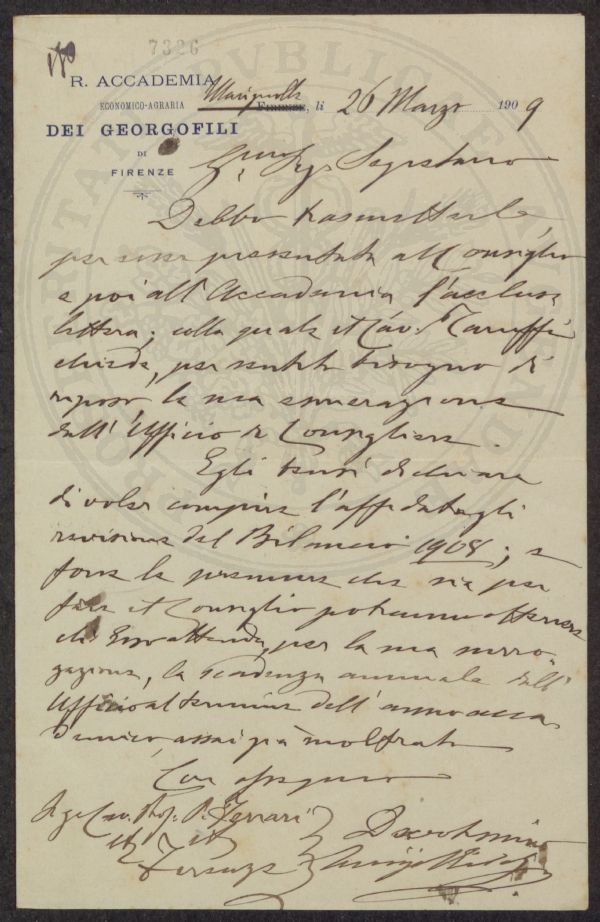 7326
R. ACCADEMIA
ECONOMICO-AGRARIA
DEI GEORGOFILI
DI
FIRENZE
FIRENZE, li 26 Marzo 1909
Segretario
Debbo trasmetterle,
per esser presentata al Consiglio
e poi all'Accademia l'acclusa
lettera; colla quale il Cav. Taruffi
chiede, per sentito bisogno di
riposo la sua esonerazione
dall'Ufficio di Consigliere.
Egli dichiara
di voler compire l'affidatagli
revisione del Bilancio 1908; e
forse le premure che sia per
fare il Consiglio potranno ottenere
che Esso attenda, per la sua surro
gazione, la scadenza annuale dell'
Ufficio al termine dell'anno acca
demico, assai già inoltrato
Con ossequio
Sig. Cav. Prof. P. Ferrari
Firenze
Devotissimo